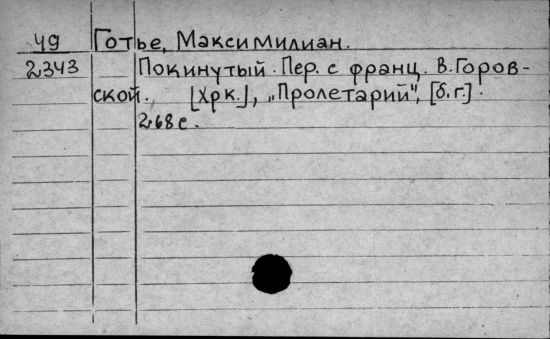 49 Готье, Максимилиан.
2343 Покинутый. Пер. с франц. В. Горов-
ской. [Хрк.], „Пролетарий", [б.г.].
268 с.